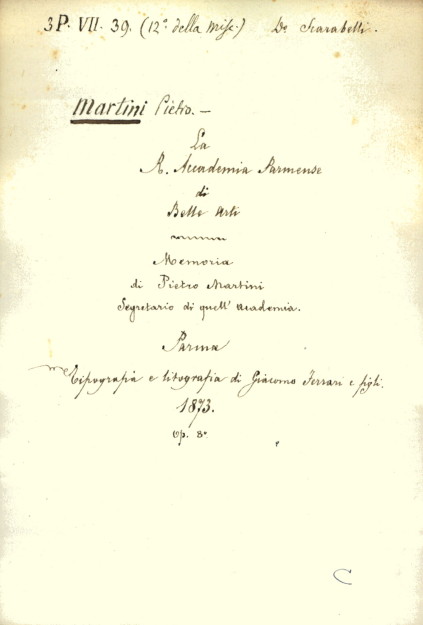 3P. VII. 39. (12ª della Misc.) De Scarabelli.
Martini Pietro. —
La
R. Accademia Parmense
di
Belle Arti
Memoria
di Pietro Martini
Segretario di quell' Accademia.
Parma
Tipografia e litografia di Giacomo Ferrari e figli.
1873.
Op. 8º
C